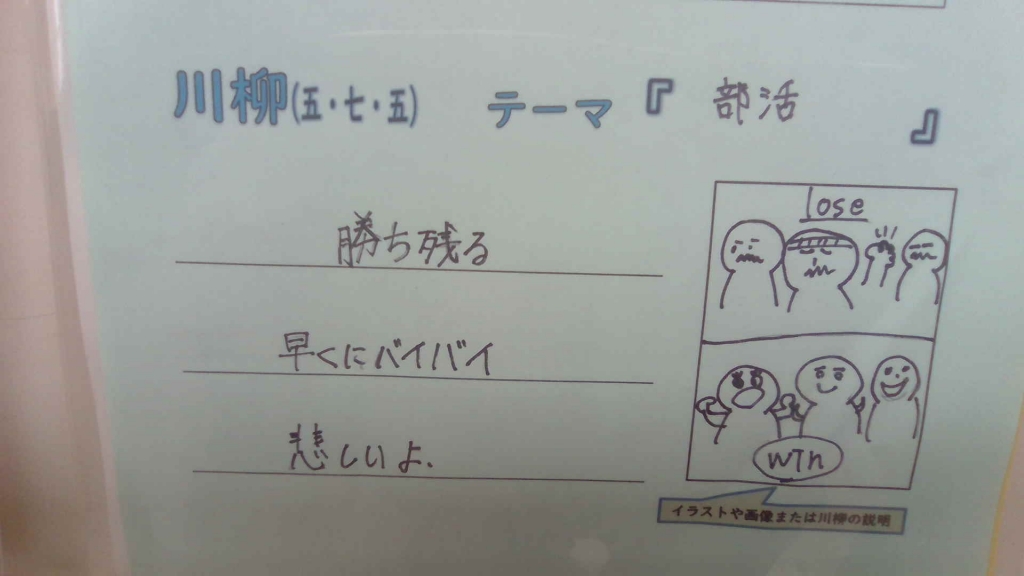 川柳(五・七・五) テーマ『 部活 』
勝ち残る
早くにバイバイ
悲しいよ.
lose
win
イラストや画像または川柳の説明